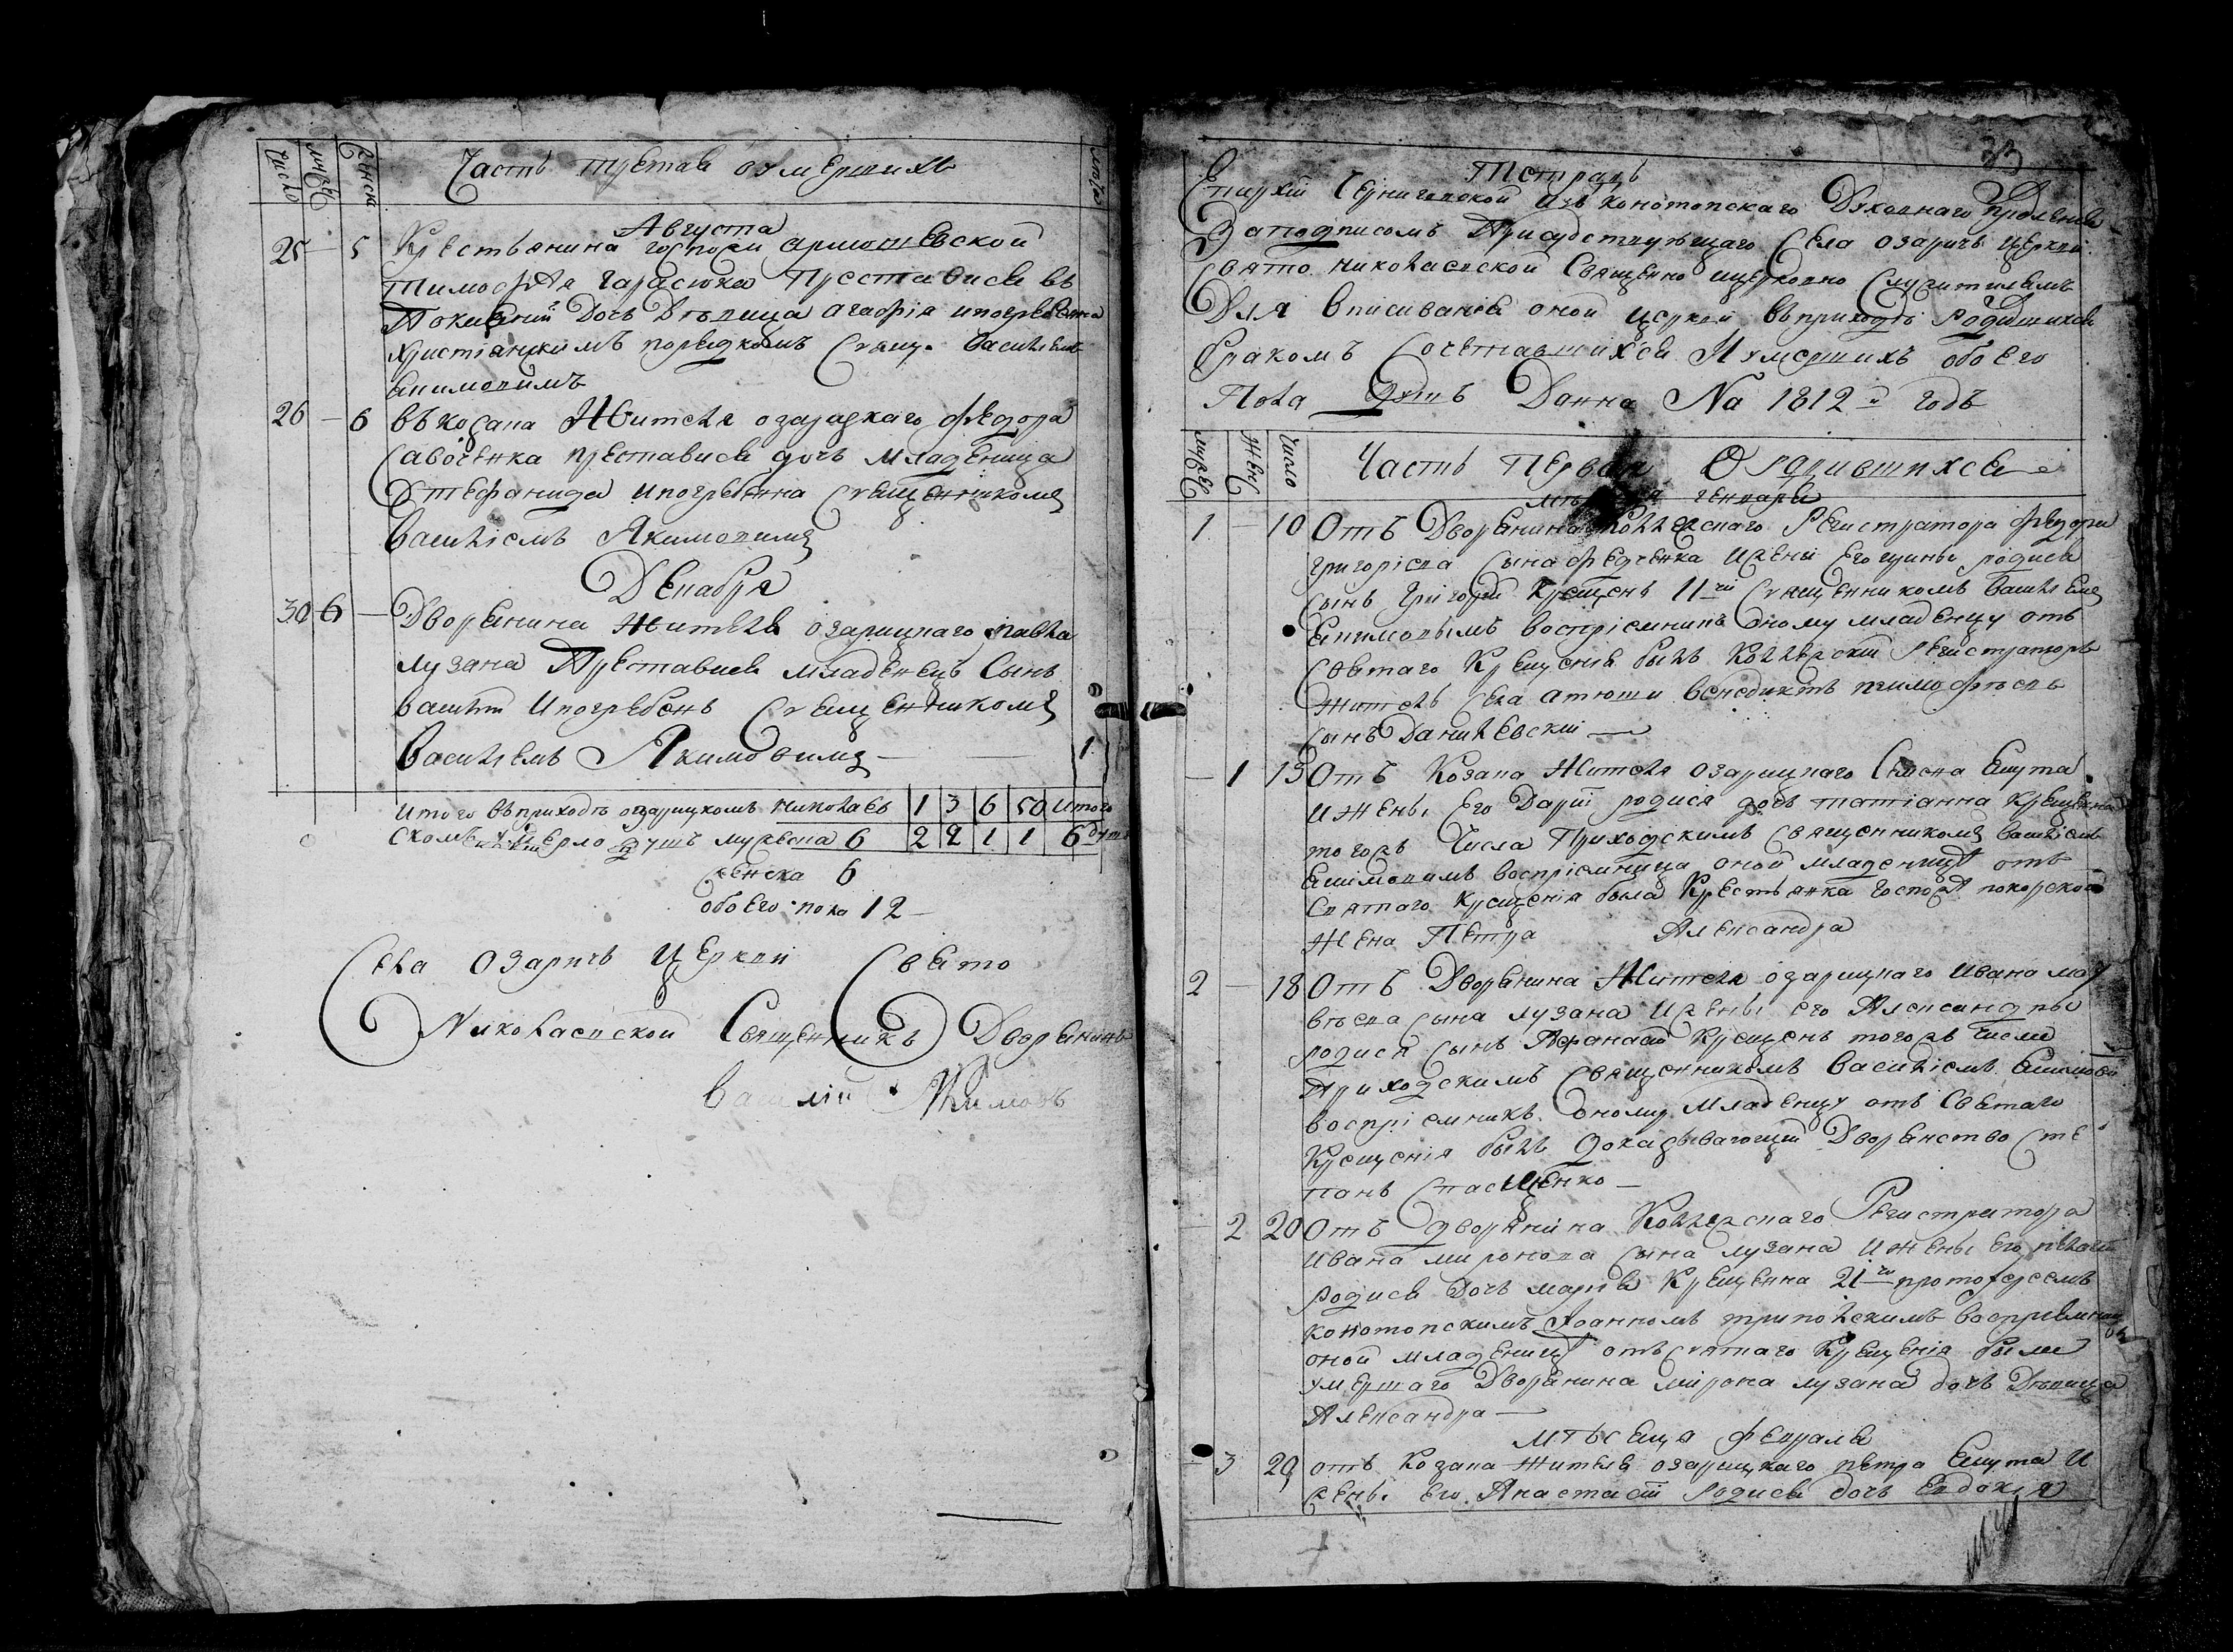 Число
мужес
женска
Часть третая о умершихъ
лѣта
Августа
25 — 5 Крестьянина госпожи
Тимофея Гарасюка Преставися въ
Покаянии дочь Дѣвица Агафия и погребена
христианскимъ порядкомъ свящ. Василиемъ
Екимовимъ
26 — 6 въ козака Жителя озарицкаго Федора
Савоченка преставися дочь младеница
Стефанида и погребенна священникомъ
Василиемъ Якимовимъ
Декабря
30 6 — Дворянина Жителя озарицкаго Павла
лузана Преставися младенецъ сынъ
василий и погребенъ священникомъ
Василиемъ Якимовимъ — 1
итого въ приходѣ озарицкомъ николаев 1 3 6 50 итого
скомъ умерло душъ мужеска 6 2 2 1 1 6 душъ
женска 6
обоего пола 12 —
Села Озаричъ церкви Свято
Николаевской Священникъ Дворянинъ
Василий Якимовъ
33
Тетрадь
Епархии Черниговской изъ Конотопскаго Духовнаго Правления
За подписомъ Присудствующаго Села озаричъ церкви
Свято николаевской Священно и церковно служителямъ
Для вписивания оной церкви въ приходѣ Родившихся
бракомъ сочетавшихся и умершихъ обоего
Пола душъ Данна На 1812й годъ
мужес
жен
число
Часть Первая О родившихся
генваря
1 — 10 Отъ Дворянина Коллежскаго Регистратора Федора
григориева сына Федченка и жени его родися
сынъ Григорий крещенъ 11го священникомъ василиемъ
Екимовымъ восприемникъ оному младенцу отъ
святаго крещения былъ Коллежский Регистраторъ
житель села атюши венедиктъ тимофѣевъ
сынъ Данилевский —
— 1 15 Отъ Козака Жителя озарицкаго Семена Ешута
и жены его Дарии родися дочь татианна крещенна
того жъ числа Приходскимъ священникомъ василиемъ
Екимовимъ восприемница оной младеницѣ отъ
святаго крещения была крестьянка госпожи покорской
жена Петра Александра
2 — 18 Отъ Дворянина Жителя озарицкаго Ивана мат
вѣева сына лузана и жены его Александры
родися сынъ Афанасий крещенъ того жъ числа
Приходскимъ священникомъ василиемъ Екимовим
восприемникъ оному младенцу отъ святаго
крещения былъ доказывающий дворянство сте
панъ Спасченко —
— 2 20 Отъ дворянина Коллежскаго Регистратора
Ивана миронова сына лузана и жены его пелагии
родися дочь мария крещенна 21го протоиереемъ
конотопскимъ Иоанномъ трипольскимъ восприемница
оной младеницѣ отъ святаго крещения была
умершаго Дворянина мирона лузана дочь Дѣвица
Александра —
мѣсяца февраля
— 3 29 отъ козака жителя озарицкаго петра Ешута и
жены его Анастасии родися дочь Евдокия